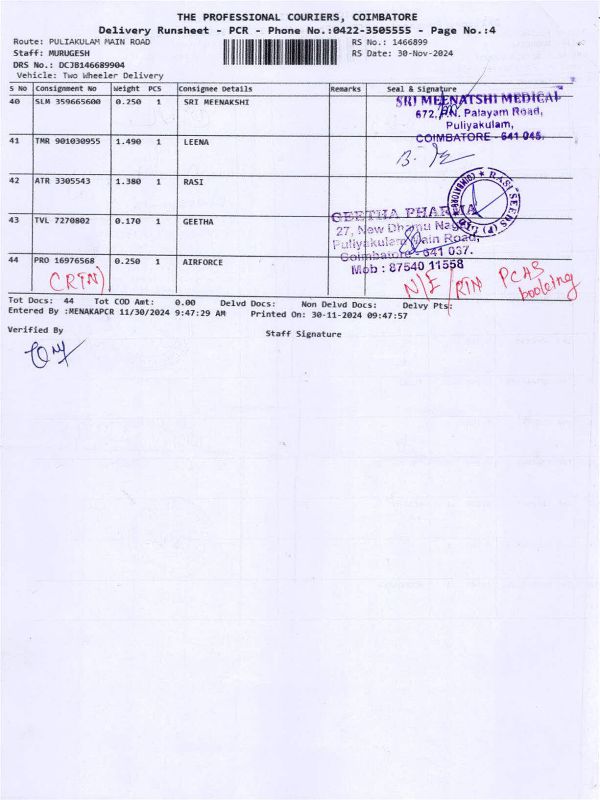 THE PROFESSIONAL COURIERS, COIMBATORE
Delivery Runsheet - PCR - Phone No.:0422-3505555 - Page No.:4
Route: PULIAKULAM MAIN ROAD RS No.: 1466899
Staff: MURUGESH RS Date: 30-Nov-2024
DRS No.: DCJB146689904
Vehicle: Two Wheeler Delivery
S No Consignment No Weight PCS Consignee Details Remarks Seal & Signature
40 SLM 359665600 0.250 1 SRI MEENAKSHI
SRI MEENATSHI MEDICAL
672, P.N. Palayam Road,
Puliyakulam,
COIMBATORE - 641 045.
41 TMR 901030955 1.490 1 LEENA
42 ATR 3305543 1.380 1 RASI
RASI SEEDS (P) LTD. ★ COIMBATORE ★
43 TVL 7270802 0.170 1 GEETHA
GEETHA PHARMA
27, New Dhamu Nagar,
Puliyakulam Main Road,
Coimbatore - 641 037.
Mob : 87540 11558
44 PRO 16976568 0.250 1 AIRFORCE
N/E / RTN PCAS
booking
Tot Docs: 44 Tot COD Amt: 0.00 Delvd Docs: Non Delvd Docs: Delvy Pts:
Entered By :MENAKAPCR 11/30/2024 9:47:29 AM Printed On: 30-11-2024 09:47:57
Verified By Staff Signature